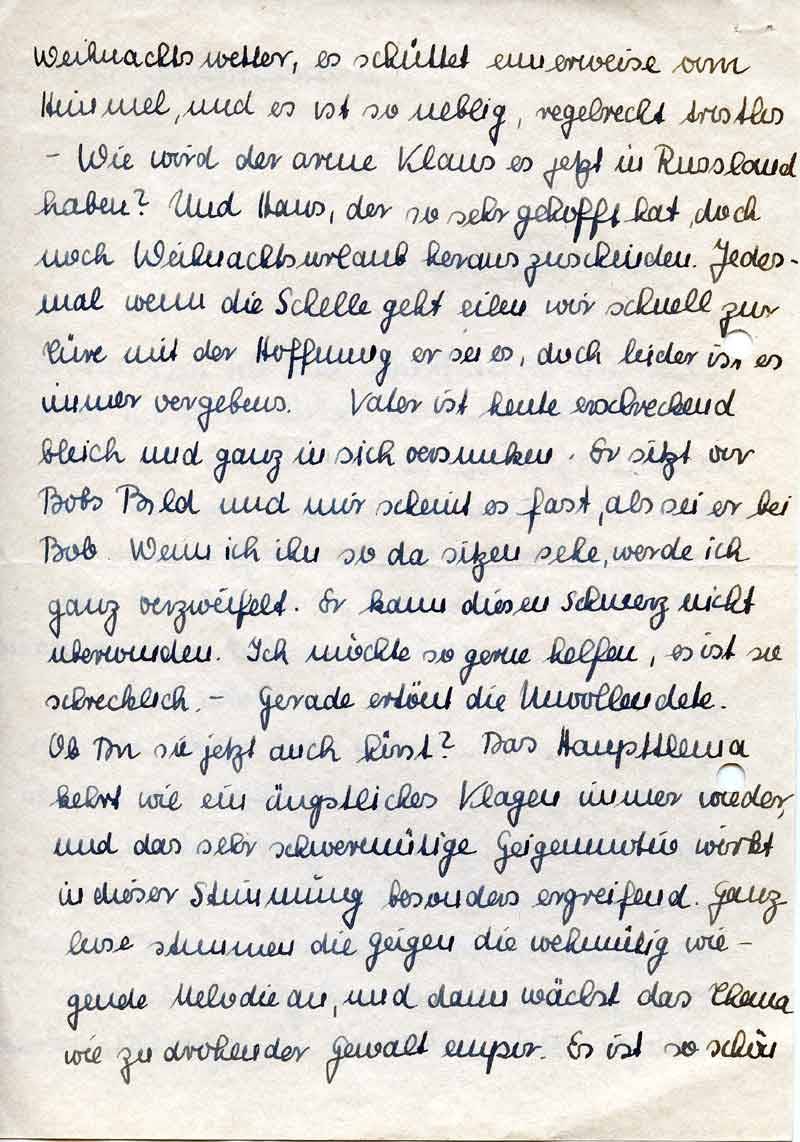 Weihnachtswetter, es schüttet eimerweise vom
Himmel, und es ist so neblig, regelrecht trostlos
- Wie wird der arme Klaus es jetzt in Russland
haben? Und Hans, der so sehr gehofft hat, doch
noch Weihnachtsurlaub herauszuschinden. Jedes-
mal wenn die Schelle geht eilen wir schnell zur
Türe mit der Hoffnung er sei es, doch leider ist es
immer vergebens. Vater ist heute erschreckend
bleich und ganz in sich versunken. Er sitzt vor
Bobs Bild und mir scheint es fast, als sei er bei
Bob. Wenn ich ihn so da sitzen sehe, werde ich
ganz verzweifelt. Er kann diesen Schmerz nicht
überwinden. Ich möchte so gerne helfen, es ist so
schrecklich. - Gerade ertönt die Unvollendete.
Ob Du sie jetzt auch hörst? Das Hauptthema
kehrt wie ein ängstliches Klagen immer wieder,
und das sehr schwermütige Geigenmotiv wirkt
in dieser Stimmung besonders ergreifend. Ganz
leise stimmen die Geigen die wehmütig wie-
gende Melodie an, und dann wächst das Thema
wie zu drohender Gewalt empor. Es ist so schön